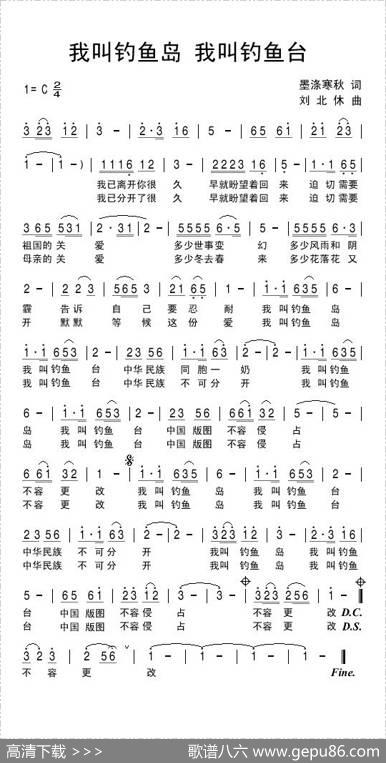 我叫钓鱼岛 我叫钓鱼台
1= C 2/4
墨涤寒秋 词
刘北休 曲
3 23 12 | 3 - | 2·3 16 | 5 - | 65 61 | 2·3 | 1 - |
1 - | 1 -) | 1116 12 | 3 - | 2223 16 | 5 - | 1·1 65 |
我已离开你很 久 早就盼望着回 来 迫切需要
我已分开了很 久 早就盼望着回 来 迫切需要
365 531 | 2·31 | 2 - | 5555 6·3 | 5 - | 5555 6·5 |
祖国的关 爱 多少世事变 幻 多少风雨和 阴
母亲的关 爱 多少冬去春 来 多少花落花 又
霾 告诉 自己 要忍 耐 我叫钓鱼 岛
开 默默 等候 这份 爱 我叫钓鱼 岛
我叫钓鱼 台 中华民族 同胞一 奶 我叫钓鱼
我叫钓鱼 台 中华民族 不可分 开 我叫钓鱼
岛 我叫钓鱼 台 中国版图 不容侵 占
岛 我叫钓鱼 台 中国版图 不容侵 占
不容更 改 我叫钓鱼 岛 我叫钓鱼 台
不容更 改 我叫钓鱼 岛 我叫钓鱼 台
中华民族 不可分 开 我叫钓鱼 岛 我叫钓鱼
中华民族 不可分 开 我叫钓鱼 岛 我叫钓鱼
台 中国版图 不容侵 占 不容更 改 D.C.
台 中国版图 不容侵 占 不容更 改 D.S.
3 23 | 2 56 | 1 - | 1 - | 1 - | 1 - ‖
不 容 更 改 Fine.
高清下载 >>> 歌谱八六 www.gepu86.com